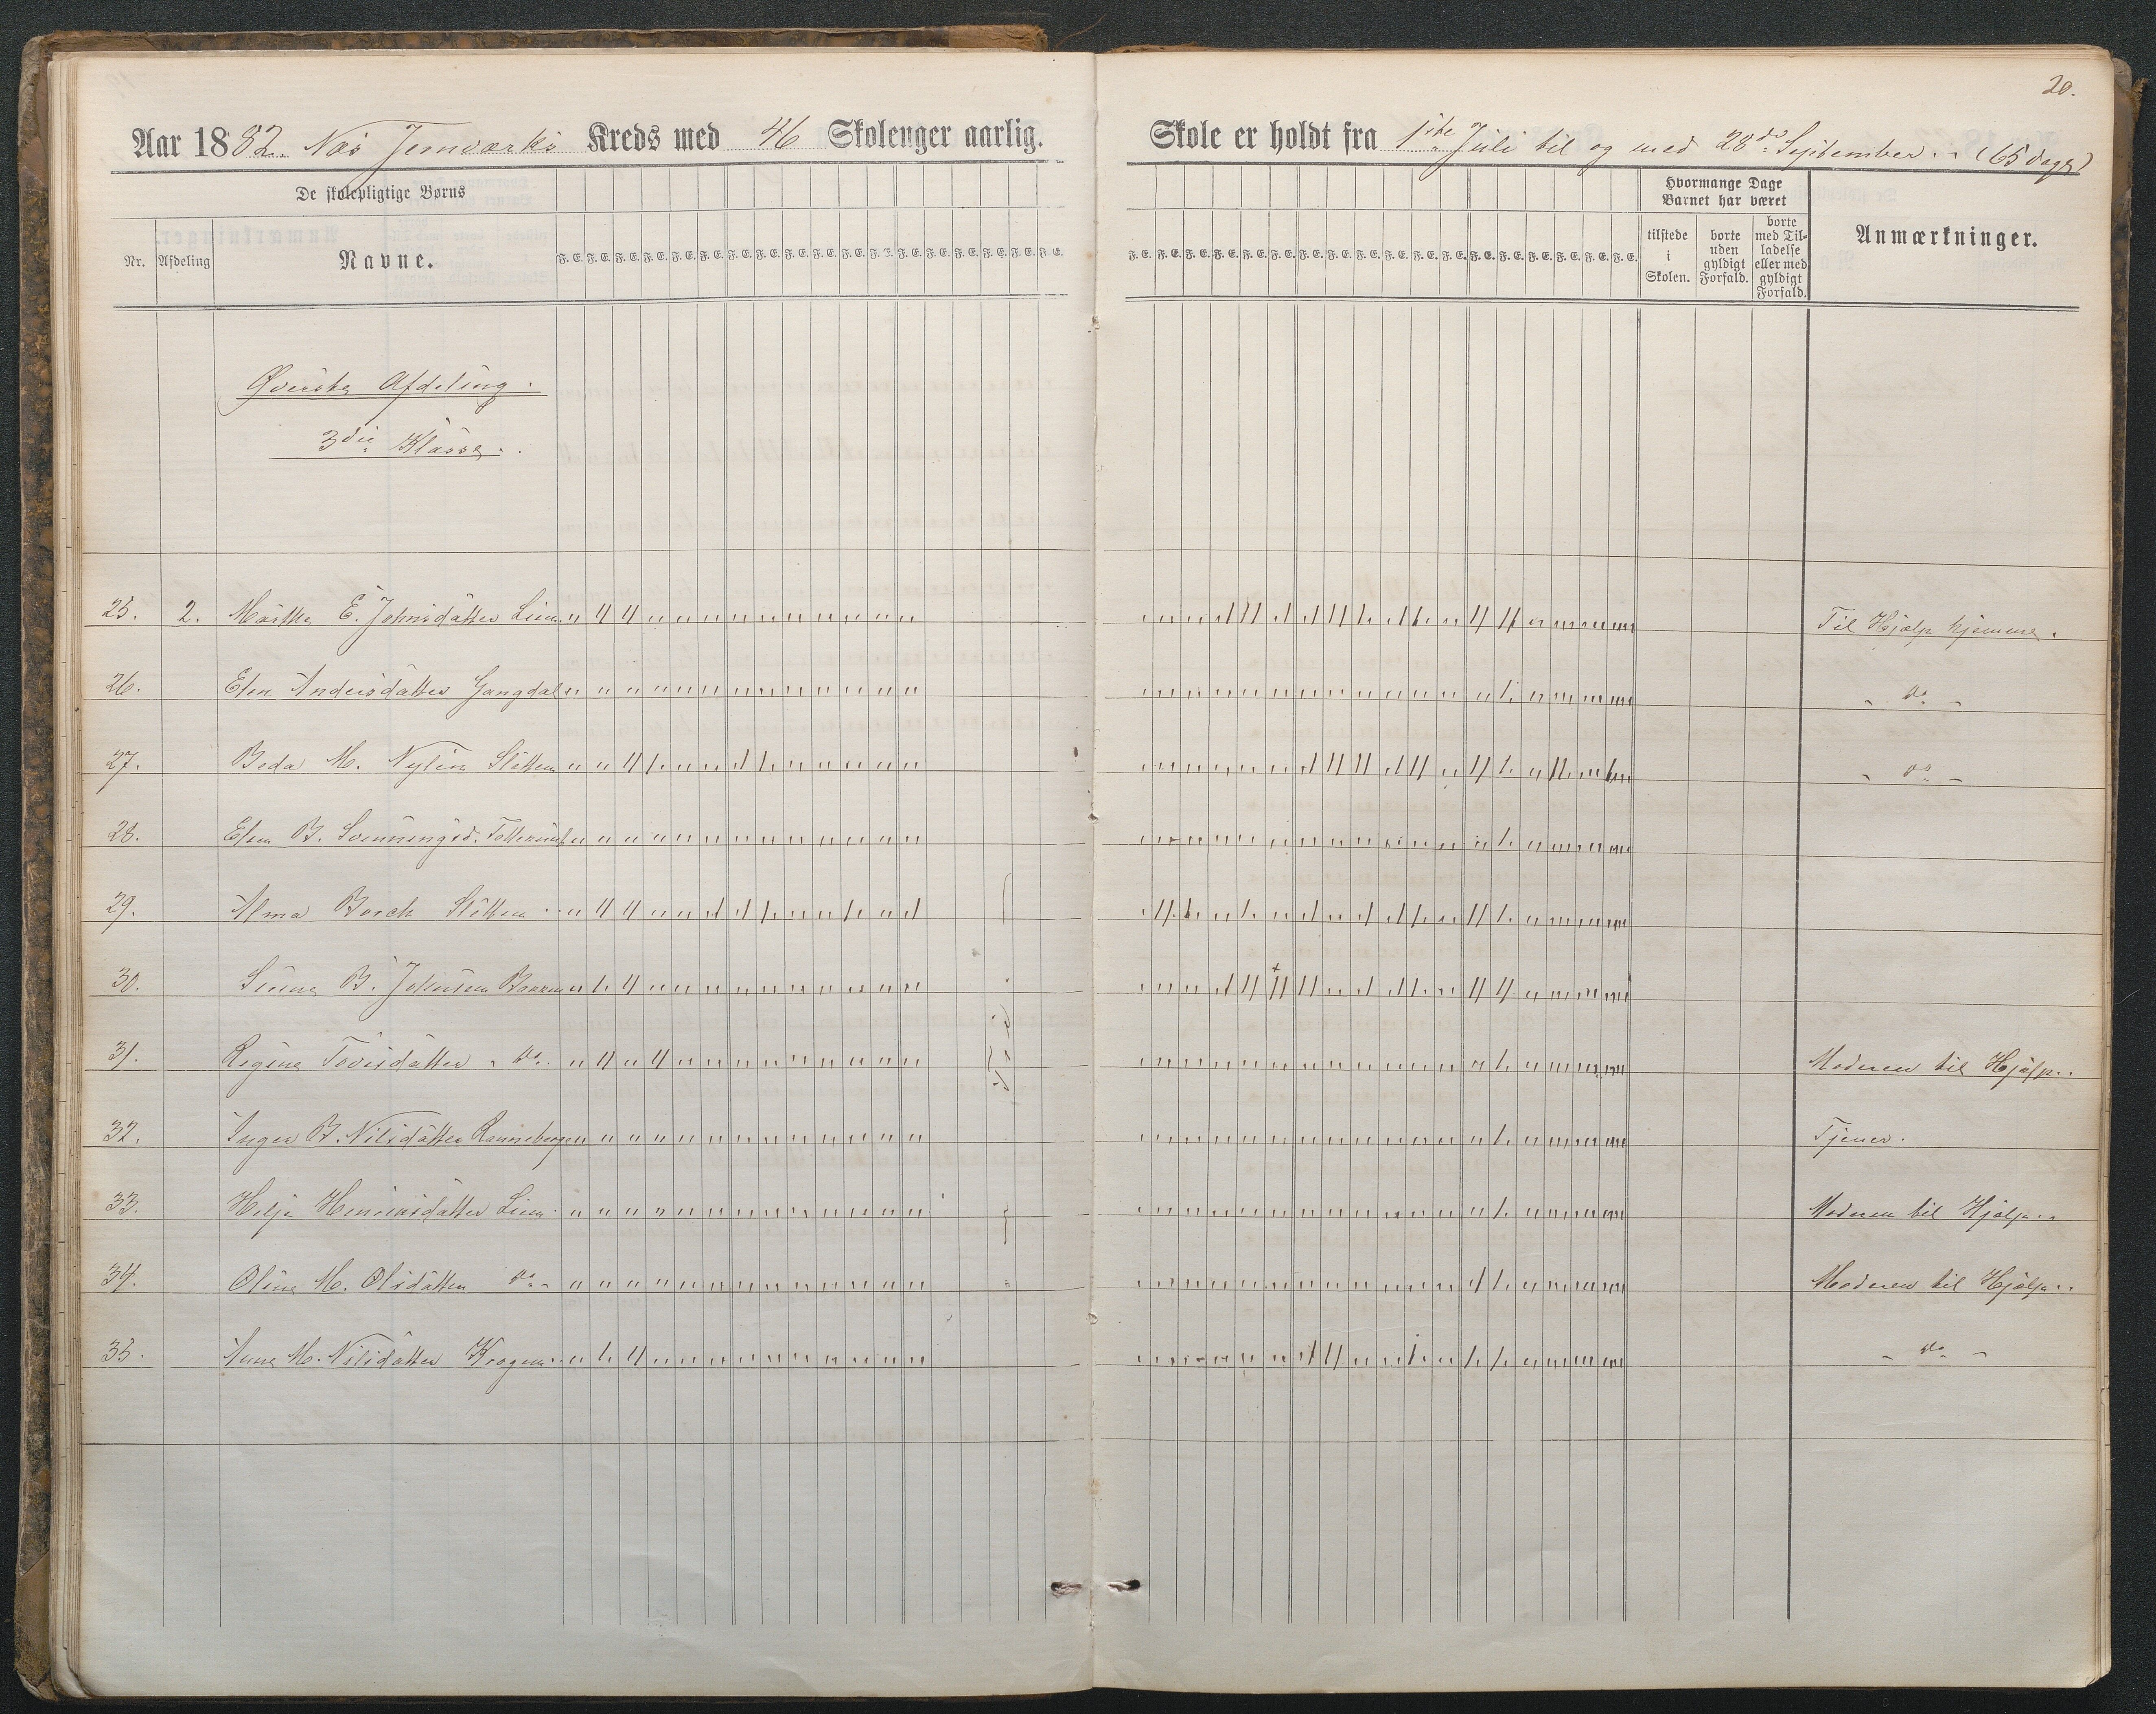 20.
Aar 1882. Næs Jernværks Kreds med 46 Skolenger aarlig.
Skole er holdt fra 1ste Juli til og med 28de September. - (65 dage)
De skolepligtige Børns
Nr. Afdeling Navne.
F. E. F. E. F. E. F. E. F. E. F. E. F. E. F. E. F. E. F. E. F. E. F. E. F. E. F. E. F. E. F. E. F. E. F. E.
F. E. F. E. F. E. F. E. F. E. F. E. F. E. F. E. F. E. F. E. F. E. F. E. F. E. F. E. F. E. F. E. F. E. F. E.
Hvormange Dage
Barnet har været
tilstede
i
Skolen.
borte
uden
gyldigt
Forfald.
borte
med Til-
ladelse
eller med
gyldigt
Forfald.
Anmærkninger.
Øverste Afdeling.
3die Klasse.
25. 2. Marthe E. Johnsdatter Lien Til Hjælp hjemme.
26. Elen Andersdatter Gangdal - do -
27. Beda M. Nylin Sletten - do -
28. Elen B. Svenningsd.
29. Alma Borch Sletten
30. B. Johnsen
31. Regine Tovesdatter - do. Moderen til Hjælp.
32. Inger B. Nilsdatter Tjener.
33. Helje Lien Moderen til Hjælp.
34. Oline M. Olsdatter do. Moderen til Hjælp.
35. Anne M. Nilsdatter Kragen - do -